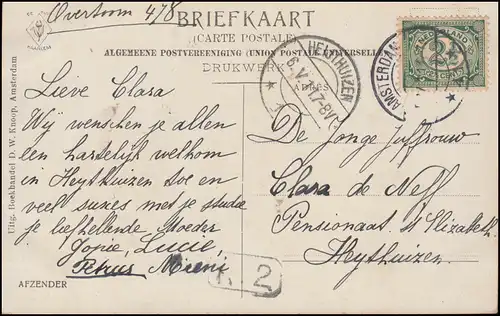 Overtoom 478
BRIEFKAART
(CARTE POSTALE)
ALGEMEENE POSTVEREENIGING (UNION POSTALE UNIVERSELLE)
DRUKWERK
ADRES
HEYTHUIZEN
AMSTERDAM
NEDERLAND
2½
CENT
HAARLEM
Uitg. Boekhandel D. W. Knoop, Amsterdam
Lieve Clara
Wij wenschen je allen
een hartelijk welkom
in Heythuizen toe en
veel succes met je studie
je liefhebbende Moeder
Jopie, Lucie,
Petrus Mieni
AFZENDER
2
De Jonge Juffrouw
Clara de Nell
Pensionaat St Elizabeth
Heythuizen